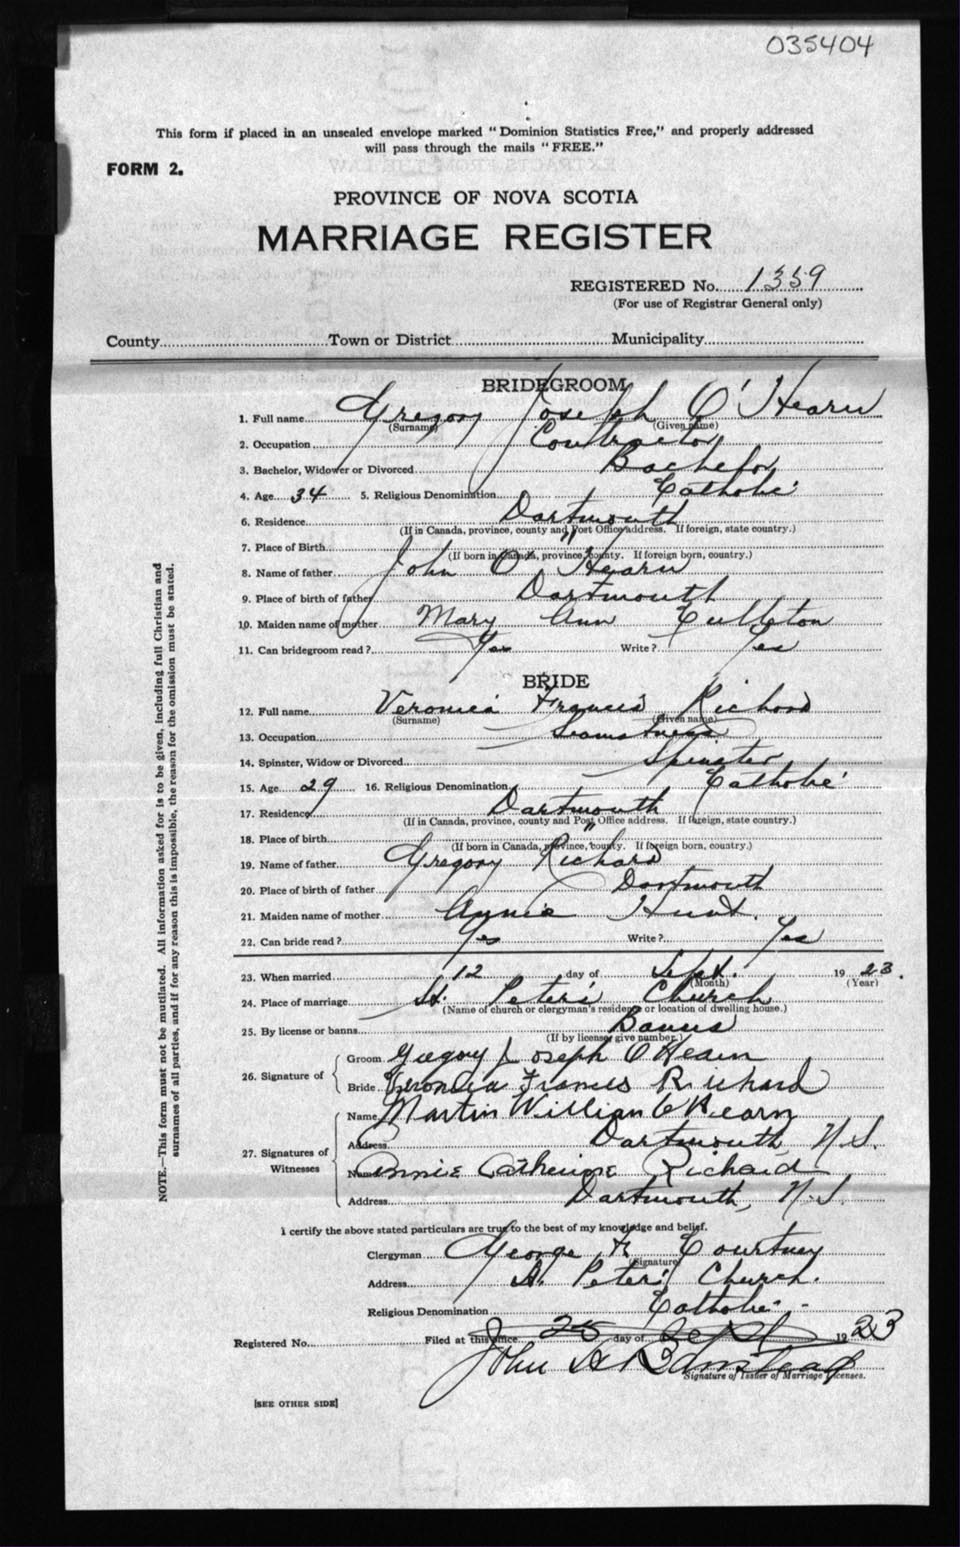 035404
This form if placed in an unsealed envelope marked "Dominion Statistics Free," and properly addressed
will pass through the mails "FREE."
FORM 2.
PROVINCE OF NOVA SCOTIA
MARRIAGE REGISTER
REGISTERED No. 1359
(For use of Registrar General only)
County Town or District Municipality
BRIDEGROOM
1. Full name Gregory Joseph O'Hearn
(Surname) (Given name)
2. Occupation Contractor
3. Bachelor, Widower or Divorced Bachelor
4. Age 34 5. Religious Denomination Catholic
6. Residence Dartmouth
(If in Canada, province, county and Post Office address. If foreign, state country.)
7. Place of Birth "
(If born in Canada, province, county. If foreign born, country.)
8. Name of father John O'Hearn
9. Place of birth of father Dartmouth
10. Maiden name of mother Mary Ann Culleton
11. Can bridegroom read? Yes Write? Yes
BRIDE
12. Full name Veronica Francis Richard
(Surname) (Given name)
13. Occupation Seamstress
14. Spinster, Widow or Divorced Spinster
15. Age 29 16. Religious Denomination Catholic
17. Residence Dartmouth
(If in Canada, province, county and Post Office address. If foreign, state country.)
18. Place of birth "
(If born in Canada, province, county. If foreign born, country.)
19. Name of father Gregory Richard
20. Place of birth of father Dartmouth
21. Maiden name of mother Annie Hunt.
22. Can bride read? Yes Write? Yes
23. When married 12 day of Sept. 1923.
(Month) (Year)
24. Place of marriage St. Peter's Church
(Name of church or clergyman's residence or location of dwelling house.)
25. By license or banns Banns
(If by license give number.)
26. Signature of
Groom Gregory Joseph O'Hearn
Bride Veronica Francis Richard
27. Signatures of Witnesses
Name Martin William O'Hearn
Address Dartmouth, N.S.
Name Annie Catherine Richard
Address Dartmouth, N.S.
I certify the above stated particulars are true to the best of my knowledge and belief.
Clergyman George F. Courtney
(Signature)
Address St. Peter's Church.
Religious Denomination Catholic
Registered No. Filed at this office 25 day of Sept 1923
John A
Signature of Issuer of Marriage Licenses.
[SEE OTHER SIDE]
NOTE.—This form must not be mutilated. All information asked for is to be given, including full Christian and
surnames of all parties, and if for any reason this is impossible, the reason for the omission must be stated.